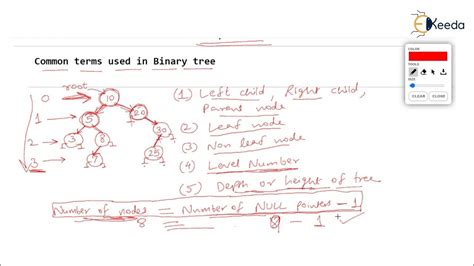 Ekeeda
Common terms used in Binary tree
COLOR
TOOLS
CLEAR CLOSE
root
0 → 10
1 → 5 20
2 → 3 8 30
3 → 7 25
(1) Left child, Right child,
Parent node
(2) Leaf node
(3) Non leaf node
(4) Level Number
(5) Depth or height of tree
Number of nodes = Number of NULL pointers - 1
8 9 - 1